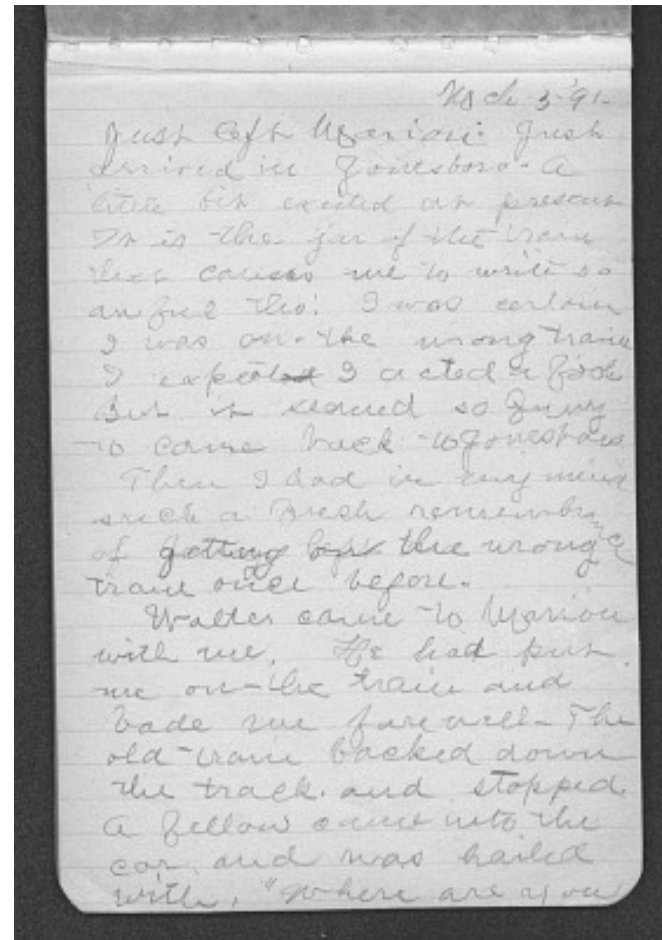 Mch-3-'91-
Just left Marion. Just
arrived in Jonesboro- A
little bit excited at present
It is the jar of the train
that causes me to write so
awful tho'. I was certain
I was on the wrong train
I I acted a fool
But it seemed so funny
to come back to Jonesboro
Then I had in my mind
such a fresh
of getting the wrong
train once before.
Walter came to Marion
with me. He had put
me on the train and
bade me farewell- The
old train backed down
the track. and stopped.
A fellow came into the
car, and was hailed
with, "Where are you